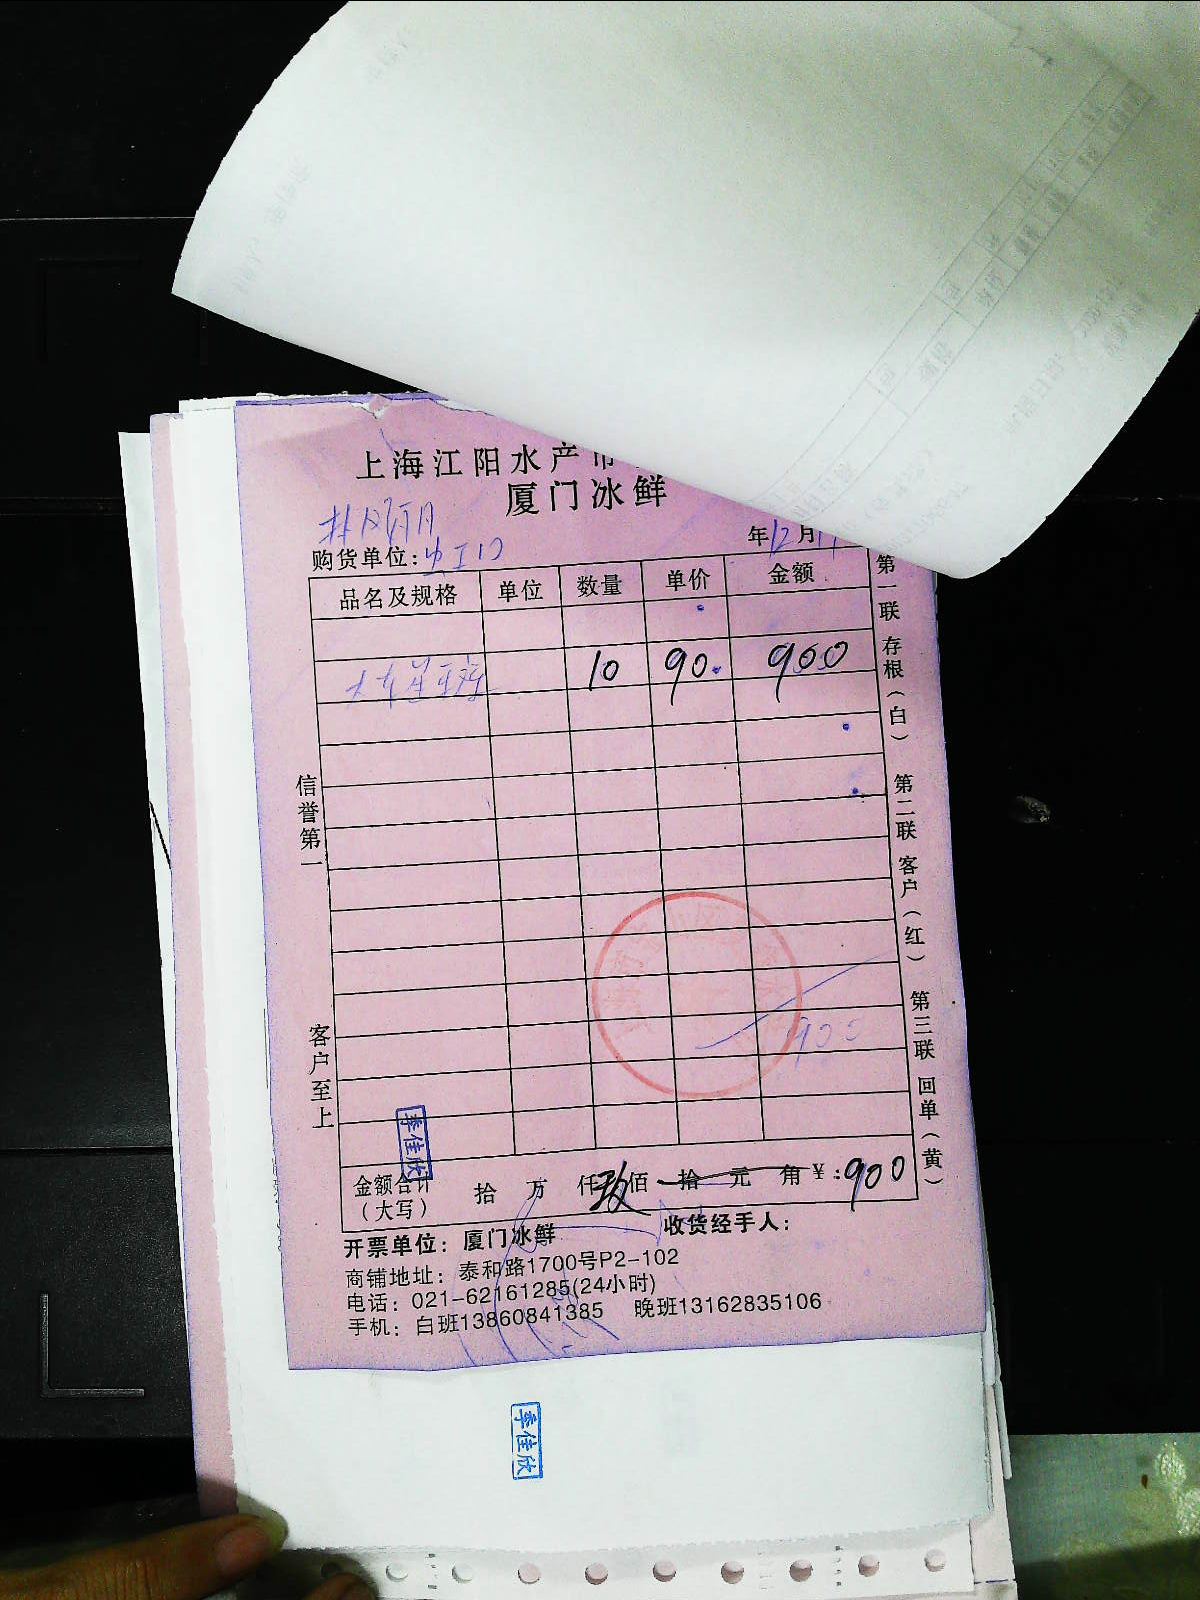 上海江阳水产市
厦门冰鲜
购货单位:
年12月
品名及规格 单位 数量 单价 金额
10 90. 900
900
信誉第一
客户至上
第一联 存根(白) 第二联 客户(红) 第三联 回单(黄)
季佳欣
金额合计(大写) 拾 万 仟玖佰 拾 元 角 ¥:900
开票单位: 厦门冰鲜 收货经手人:
商铺地址: 泰和路1700号P2-102
电话: 021-62161285(24小时)
手机: 白班13860841385 晚班13162835106
季佳欣